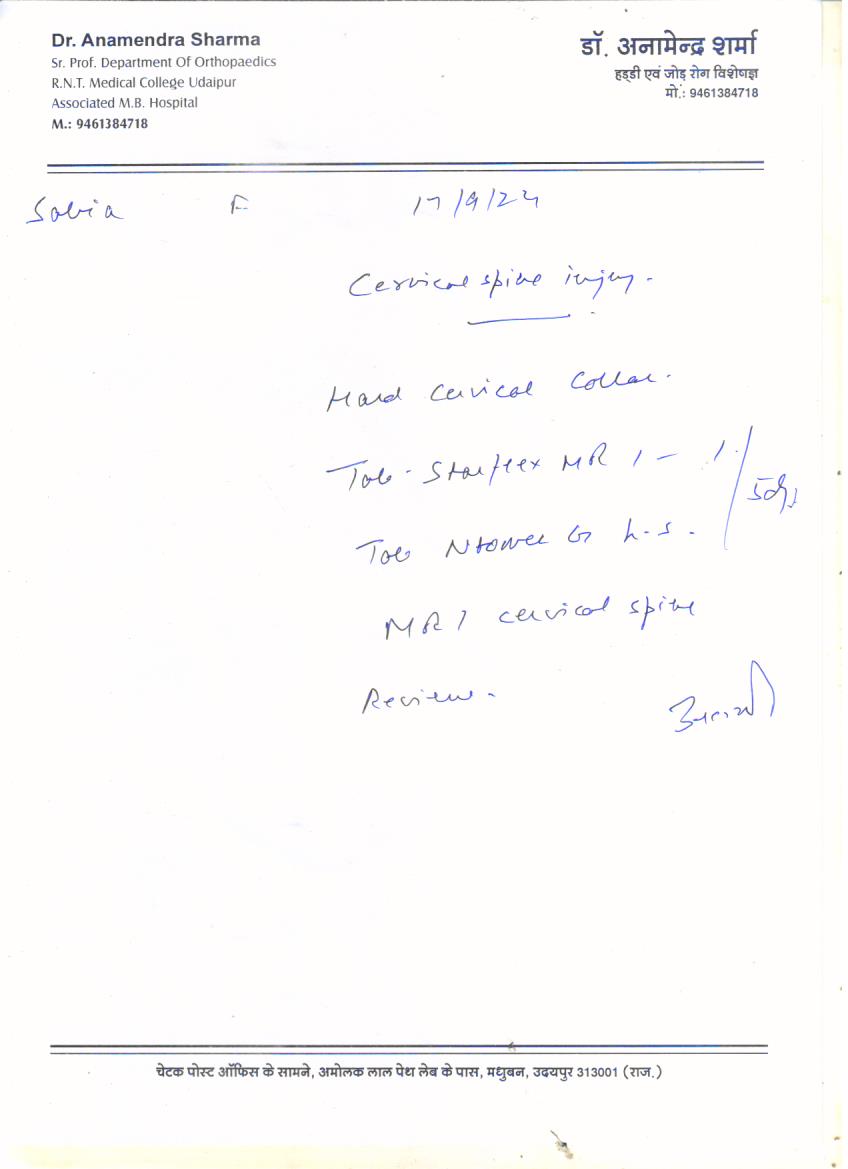 Dr. Anamendra Sharma
Sr. Prof. Department Of Orthopaedics
R.N.T. Medical College Udaipur
Associated M.B. Hospital
M.: 9461384718
डॉ. अनामेन्द्र शर्मा
हड्डी एवं जोड़ रोग विशेषज्ञ
मो.: 9461384718
Sabia F 17/9/24
Cervical spine injury.
Hard Cervical Collar.
Tab. Starflex MR 1 - 1
Tab h.s.
5d
MRI cervical spine
Review.
चेटक पोस्ट ऑफिस के सामने, अमोलक लाल पेथ लेब के पास, मधुबन, उदयपुर 313001 (राज.)